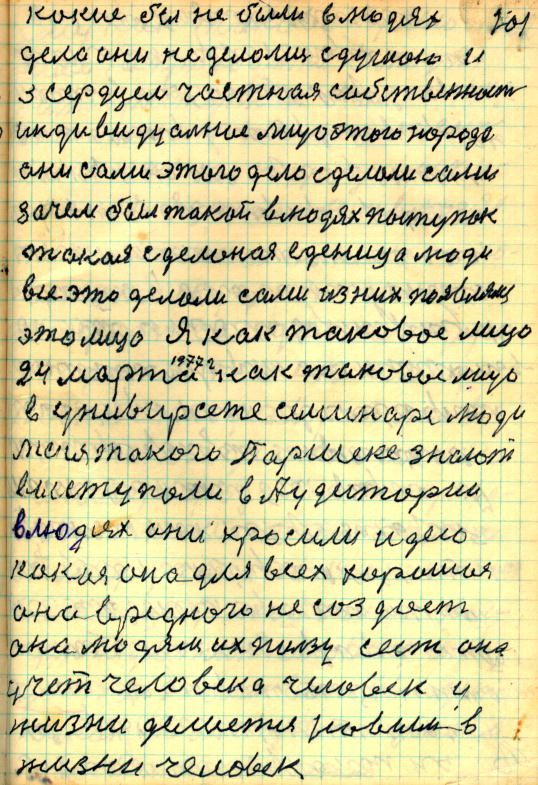 какие бы не были в людях 101
дела они не делолиц с душою и
з сердцем частная собственност
индивидуалное лицо этого народа
они сами этого дело сделоли сами
зачем был такой в людях поступок
такая сделоная еденица люди
все это делоли сами из них появляяц
это лицо Я как таковое лицо
24 марта 1977 г как таковое лицо
в университете семинаре люди
меня такого Паршека знают
выступоли в Аудитории
в людях они просили идею
какая она для всех хорошая
она вредного не создает
она людям их ползу сест она
учет человека человек и
жизни делается новым в
жизни человек